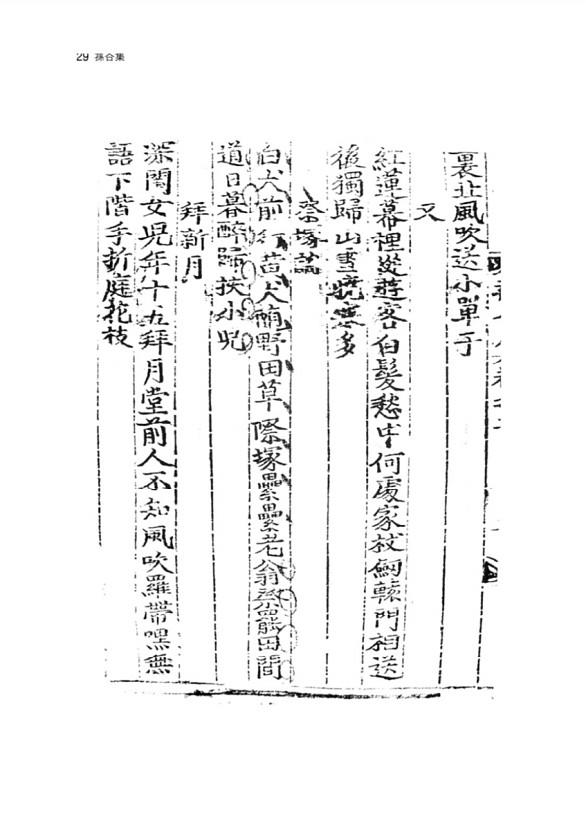 29 孫合集
裏北風吹送小單于
又
紅蓮幕裡從遊客白髮愁中何處家杖劒轅門相送
後獨歸山雪曉寒多
祭塚謠
白犬前行黃犬隨野田草際塚纍纍老翁祭罷田間
道日暮醉歸扶小兒
拜新月
深閨女兒年十五拜月堂前人不知風吹羅帶嘿無
語下階手折庭花枝